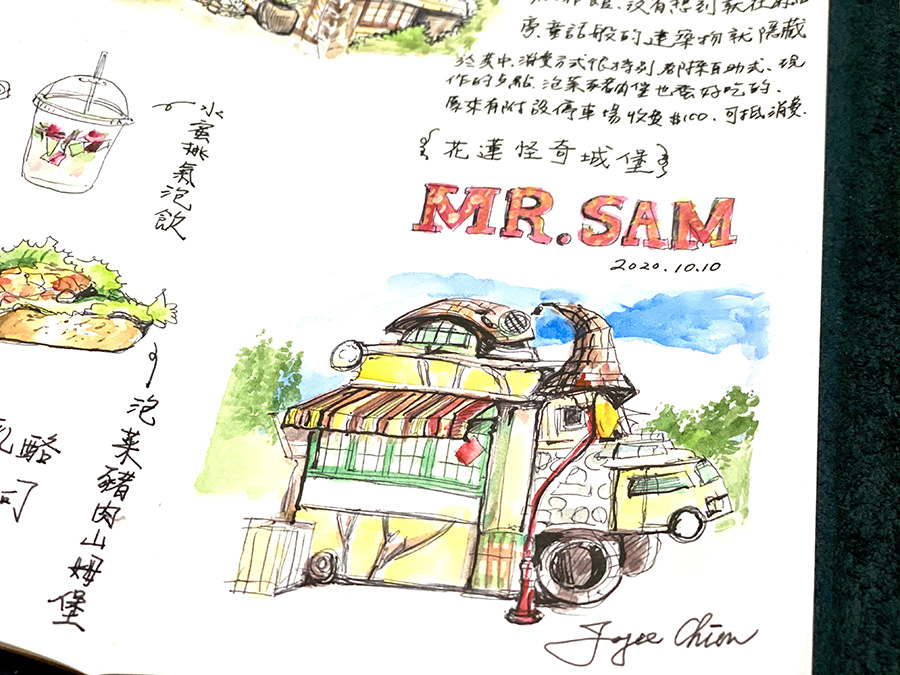 館、沒有想到就在
童話般的建築物就隱藏
於其中.消費方式很特別.都採自助式、現
作的歺點.泡菜豬肉堡也蠻好吃的.
原來有附設停車場收費$100.可抵消費.
花蓮怪奇城堡
MR.SAM
2020.10.10
水蜜桃氣泡飲
泡菜豬肉山姆堡
乳酪
司
Joyce Chien